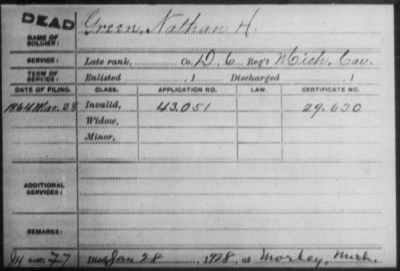 DEAD
NAME OF SOLDIER: Green, Nathan H.
SERVICE: Late rank, Co. D, 6 Reg't Mich. Cav.
TERM OF SERVICE: Enlisted , 1 Discharged , 1
DATE OF FILING. CLASS. APPLICATION NO. LAW. CERTIFICATE NO.
1864 Mar. 28 Invalid, 43.051 29.630
Widow,
Minor,
ADDITIONAL SERVICES:
REMARKS:
77 Died Jan 28, 1928, at Morley, Mich.